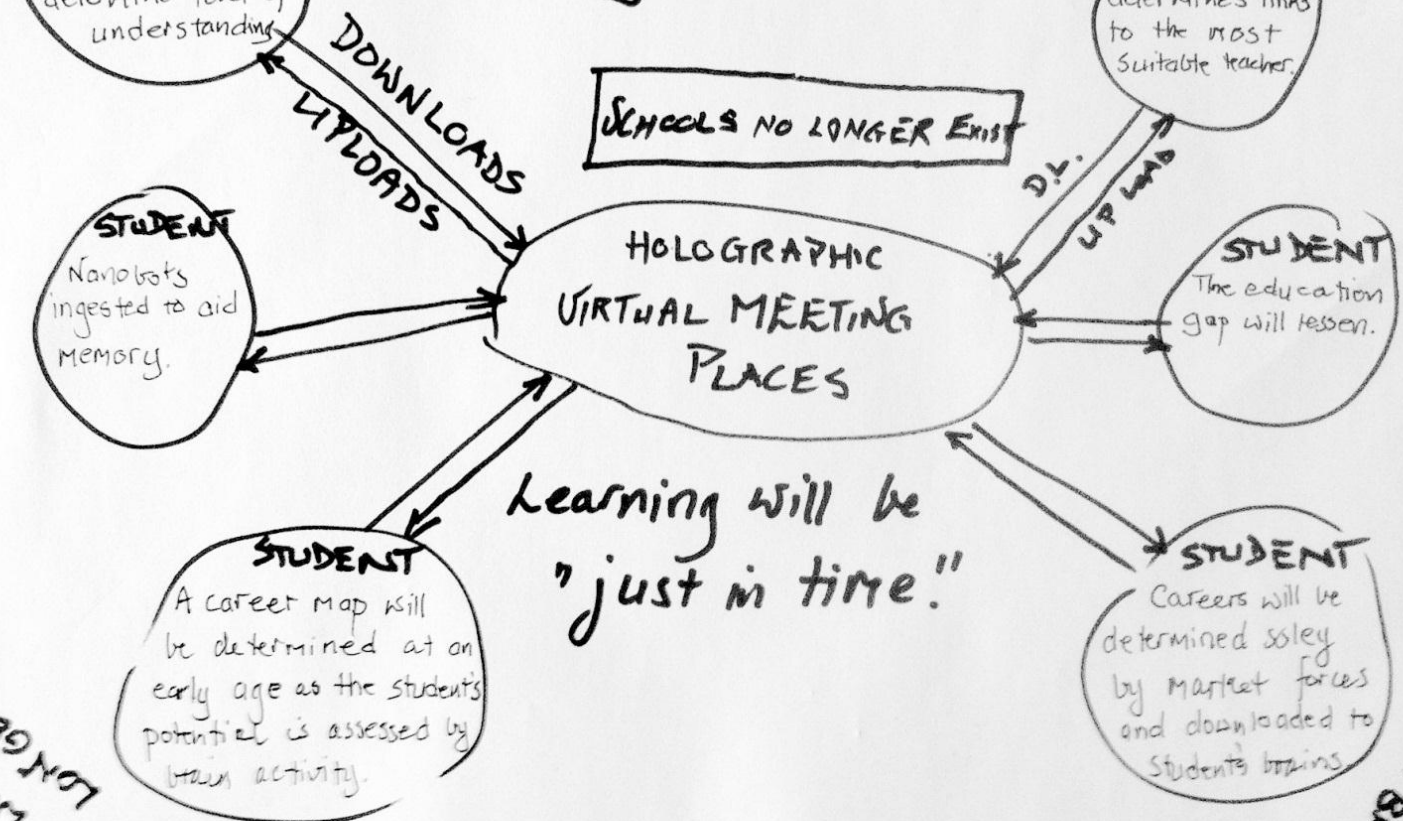 understanding
DOWNLOADS
UPLOADS
SCHOOLS NO LONGER EXIST
to the most
suitable teacher.
D.L.
UP LOAD
STUDENT
Nanobots
ingested to aid
memory.
HOLOGRAPHIC
VIRTUAL MEETING
PLACES
STUDENT
The education
gap will lessen.
Learning will be
"just in time."
STUDENT
A career map will
be determined at an
early age as the student's
potential is assessed by
brain activity.
STUDENT
Careers will be
determined soley
by market forces
and downloaded to
student's brains.